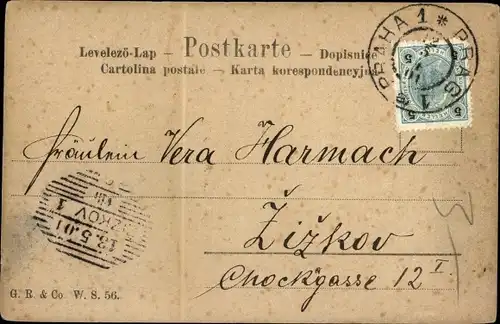 Levelező-Lap — Postkarte — Dopisnice
Cartolina postale — Karta korespondencyjna
PRAHA 1 * PRAG 1
5 5
5 5
Fräulein Vera Harmach
Žižkov
Chockgasse 12 I.
ŽIŽKOV 1
13.5.01
VIII
G. R. & Co. W. S. 56.